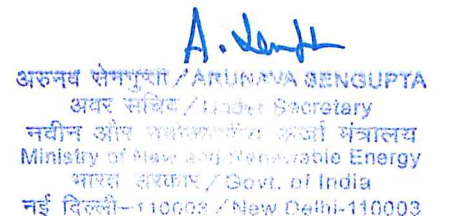 A. Sengupta
अरुनव सेनगुप्ता / ARUNAVA SENGUPTA
अवर सचिव / Under Secretary
नवीन और नवीकरणीय ऊर्जा मंत्रालय
Ministry of New and Renewable Energy
भारत सरकार / Govt. of India
नई दिल्ली-110003 / New Delhi-110003